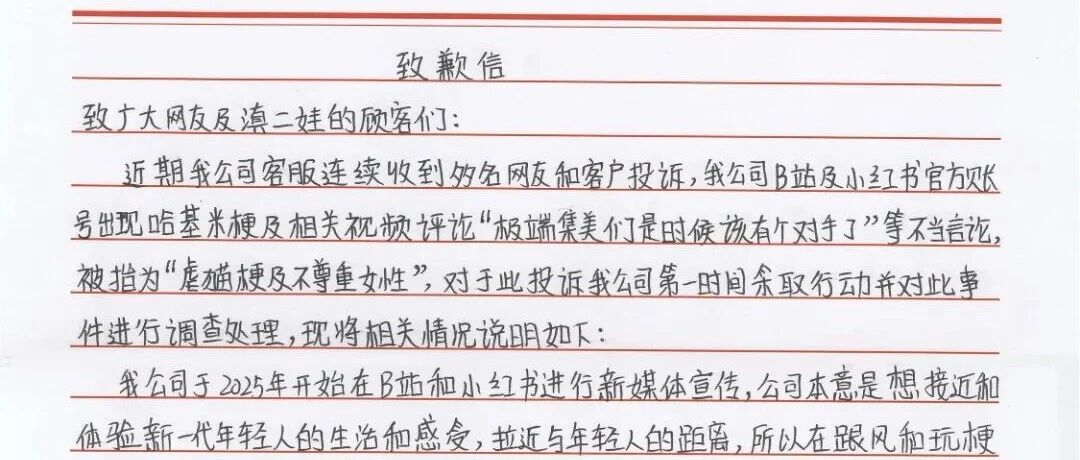 致歉信
致广大网友及滇二娃的顾客们：
近期我公司客服连续收到多名网友和客户投诉，我公司B站及小红书官方账
号出现哈基米梗及相关视频评论“极端集美们是时候该有个对手了”等不当言论，
被指为“虐猫梗及不尊重女性”，对于此投诉我公司第一时间采取行动并对此事
件进行调查处理，现将相关情况说明如下：
我公司于2025年开始在B站和小红书进行新媒体宣传，公司本意是想接近和
体验新一代年轻人的生活和感受，拉近与年轻人的距离，所以在跟风和玩梗